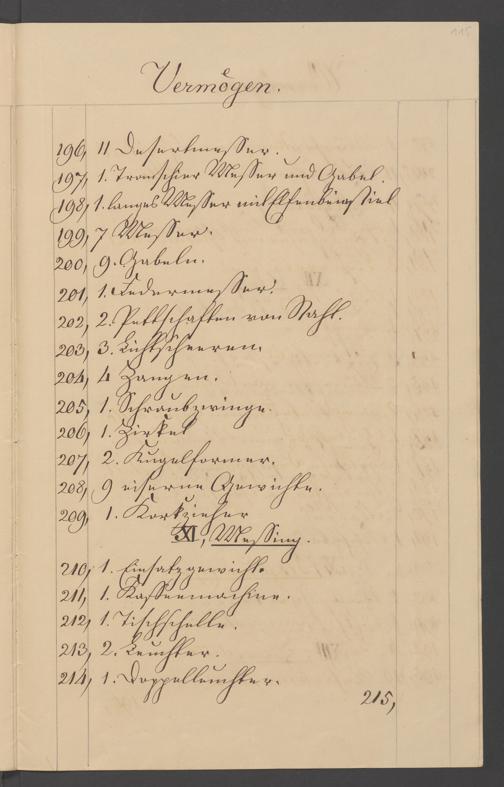 115
Vermögen.
196, 11 Desertmesser.
197, 1. Transchier Messer und Gabel.
198, 1. langes Messer mit Elfenbeinstiel
199, 7 Messer.
200, 9. Gabeln.
201, 1. Federmesser.
202, 2. Pettschaften von Stahl.
203, 3. Lichtscheeren.
204, 4 Zangen.
205, 1. Schraubzwinge.
206, 1. Zirkel
207, 2. Kugelformer.
208, 9 eiserne Gewichte.
209, 1. Korkzieher
XI, Messing.
210, 1. Einsatzgewicht.
211, 1. Kaffeemachine.
212, 1. Tischschelle.
213, 2. Leuchter.
214, 1. Doppelleuchter.
215,